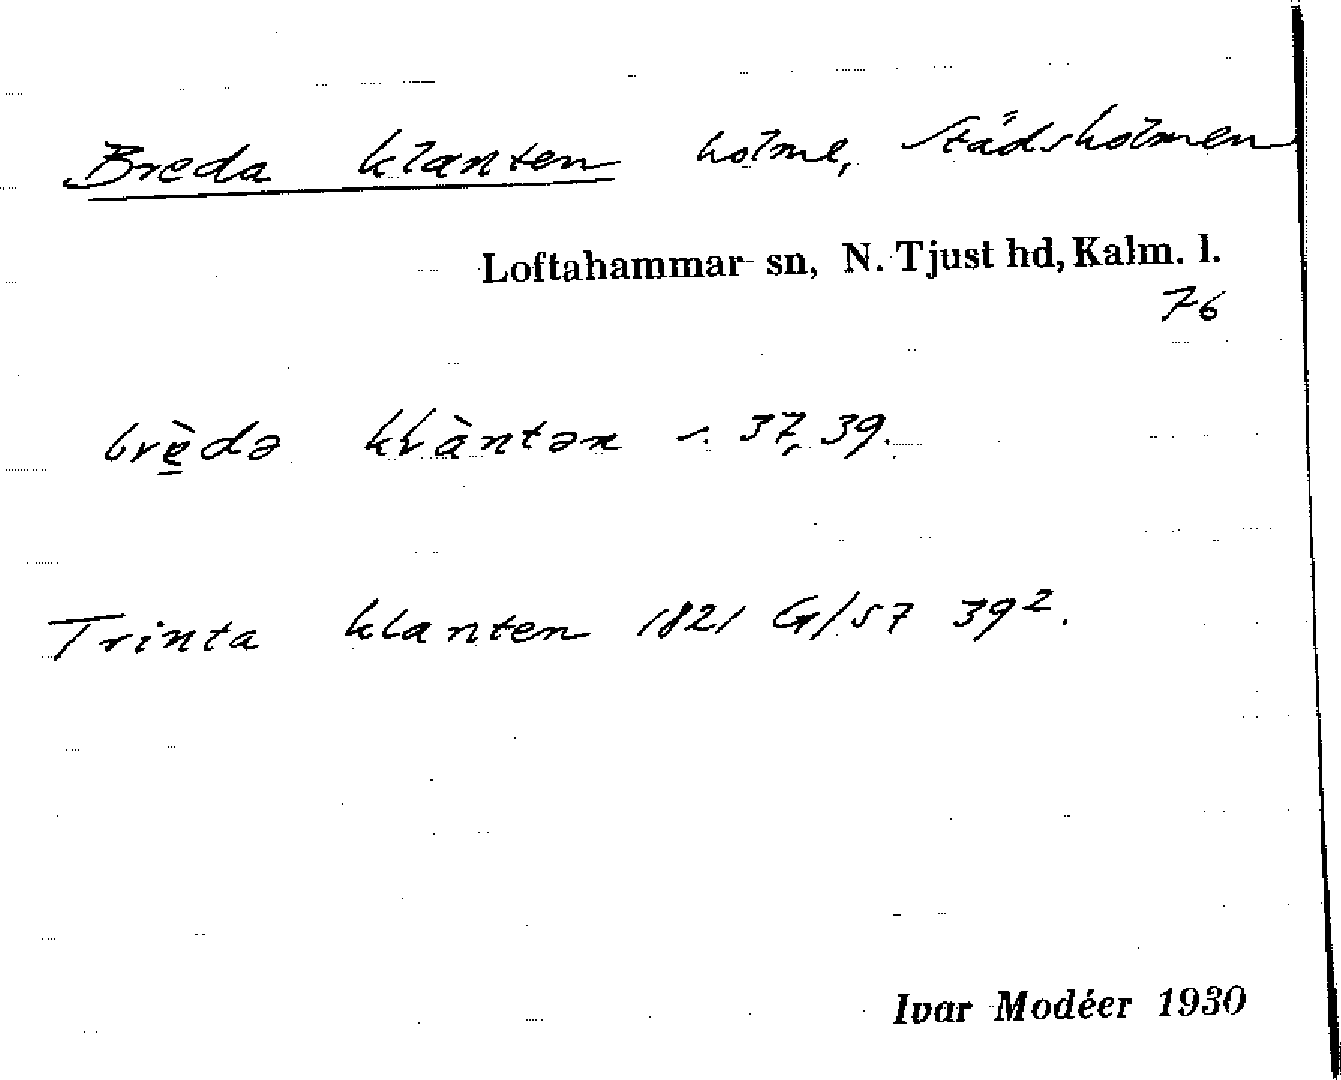 Breda klanten holme, Städsholmen
Loftahammar sn, N. Tjust hd, Kalm. l.
76
brèdə klàntən 37, 39.
Trinta klanten 1821 G/57 39².
Ivar Modéer 1930